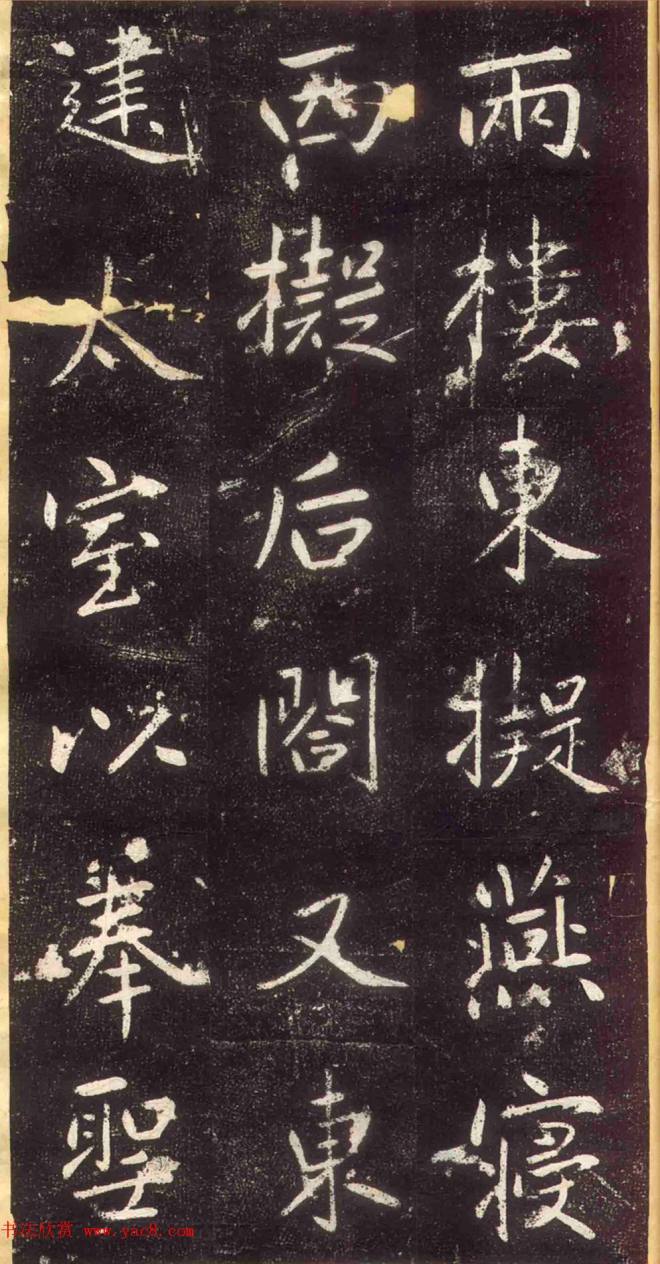 兩樓東擬燕寢
西擬后閤又東
建太室以奉聖
书法欣赏 www.yac8.com